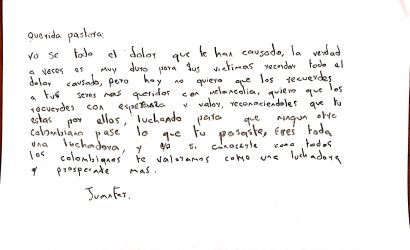 Querida pastora:
Yo se todo el dolor que te han causado, la verdad
a veces es muy duro para tus victimas recordar todo el
dolor causado, pero hoy no quiero que los recuerdes
a tus seres mas queridos con melancolia, quiero que los
recuerdes con esperanza y valor, reconociendoles que tu
estas por ellos, luchando para que ningun otro
colombiano pase lo que tu pasaste, Eres toda
una luchadora, y yo se como todos
los colombianos te valoramos como una luchadora
y mas.
Juanfer.